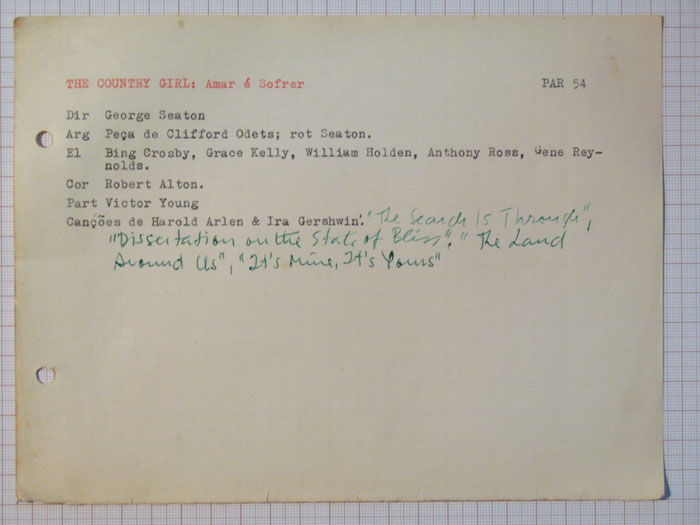 THE COUNTRY GIRL: Amar é Sofrer PAR 54
Dir George Seaton
Arg Peça de Clifford Odets; rot Seaton.
El Bing Crosby, Grace Kelly, William Holden, Anthony Ross, Gene Rey-
nolds.
Cor Robert Alton.
Part Victor Young
Canções de Harold Arlen & Ira Gershwin: "The Search Is Through",
"Dissertation on the State of Bliss", "The Land
Around Us", "It's Mine, It's Yours"